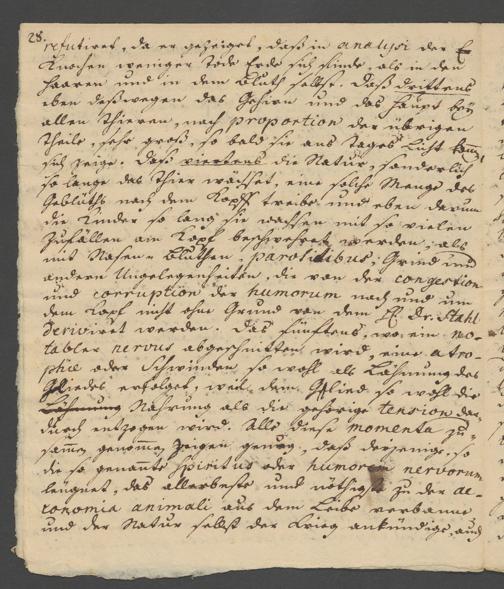 28.
refutiret, da er gezeiget, daß in analysi der
Knochen weniger todte Erde sich finde, als in den
Haaren und in dem Bluth selbst. Daß drittens
eben deßwegen das Gehirn und das Haupt bey
allen Thieren, nach proportion der übrigen
Theile, sehr groß, so bald sie ans Tages Licht
sich zeige. Daß viertens die Natur, sonderlich
so lange das Thier wächset, eine solche Menge des
Geblüths nach dem Kopff treibe und eben darum
die Kinder so lang sie wachsen mit so vielen
Zufällen am Kopf beschwehret werden, als
mit Nasen-Bluthen, parotidibus, Grind und
andern Ungelegenheiten, die von der congestion
und corruption der humorum nach und um
dem Kopf nicht ohne Grund von dem H. Dr. Stahl
deriviret werden. Das fünftens, wo ein no-
tabler nervus abgeschnitten wird, eine atro-
phie oder Schwinden so wohl als Lähmung des
Gliedes erfolget, weil dem Glied so wohl die
Nahrung als die gehörige tension da-
durch entzogen wird. Alle diese momenta zu-
sammen genommen zeigen genung, daß derjenige, so
die so genante spiritus oder humorem nervorum
leugnet, das allerbeste und nöthigste zu der oe-
conomia animali aus dem Leibe verbanne
und der Natur selbst den Krieg ankündige, auch